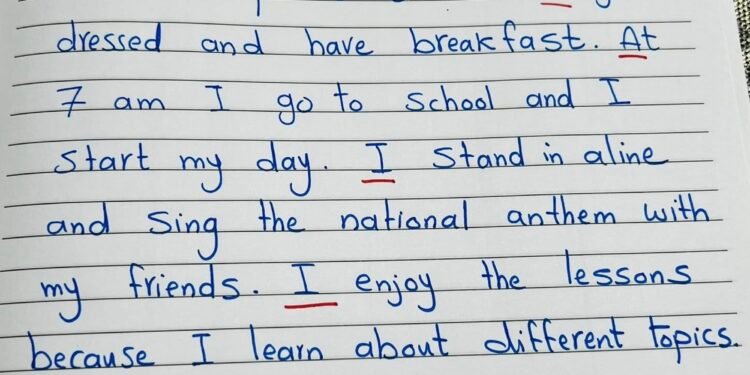 dressed and have breakfast. At
7 am I go to school and I
start my day. I stand in aline
and sing the national anthem with
my friends. I enjoy the lessons
because I learn about different topics.